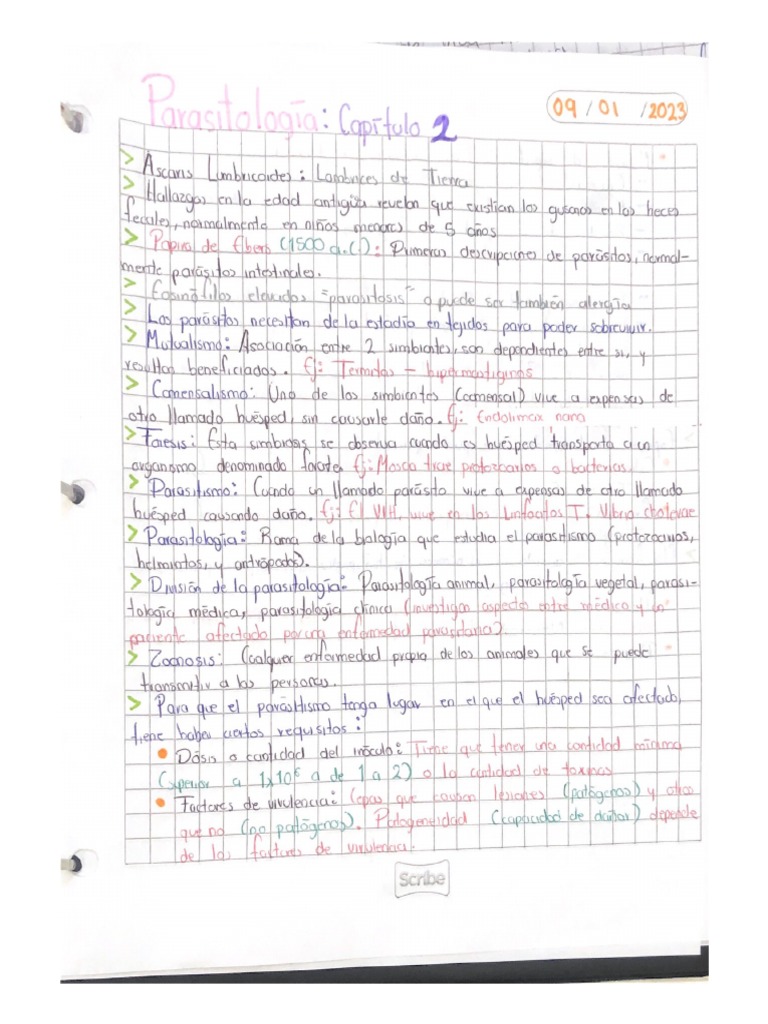 Parasitología: Capítulo 2
09 / 01 / 2023
> Ascaris Lumbricoides: Lombrices de Tierra
> Hallazgos en la edad antigua revelan que existían los gusanos en las heces
fecales, normalmente en niños menores de 5 años
> Papiro de Ebers (1500 a.C.): Primeras descripciones de parásitos, normal-
mente parásitos intestinales.
> Eosinófilos elevados "parasitosis" o puede ser también alergia
> Los parásitos necesitan de la estadía en tejidos para poder sobrevivir.
> Mutualismo: Asociación entre 2 simbiontes, son dependientes entre sí, y
resultan beneficiados. Ej: Termitas - hipermastiginos
> Comensalismo: Uno de los simbiontes (comensal) vive a expensas de
otro llamado huésped, sin causarle daño. Ej: Endolimax nana
> Foresis: Esta simbiosis se observa cuando es huésped transporta a un
organismo denominado foronte. Ej: Mosca trae protozoarios o bacterias.
> Parasitismo: Cuando un llamado parásito vive a expensas de otro llamado
huésped causando daño. Ej: El VIH. vive en los Linfocitos T. Vibrio cholerae
> Parasitología: Rama de la biología que estudia el parasitismo (protozoarios,
helmintos, y artrópodos).
> División de la parasitología: Parasitología animal, parasitología vegetal, parasi-
tología médica, parasitología clínica (investigan aspectos entre médico y un
paciente afectado por una enfermedad parasitaria).
> Zoonosis: Cualquier enfermedad propia de los animales que se puede
transmitir a las personas.
> Para que el parasitismo tenga lugar en el que el huésped sea afectado,
tiene haber ciertos requisitos:
• Dosis o cantidad del inóculo: Tiene que tener una cantidad mínima
(superior a 1x10⁶ o de 1 a 2) o la cantidad de toxinas
• Factores de virulencia: Cepas que causan lesiones (patógenos) y otros
que no (no patógenos). Patogeneidad (capacidad de dañar) depende
de los factores de virulencia.
Scribe